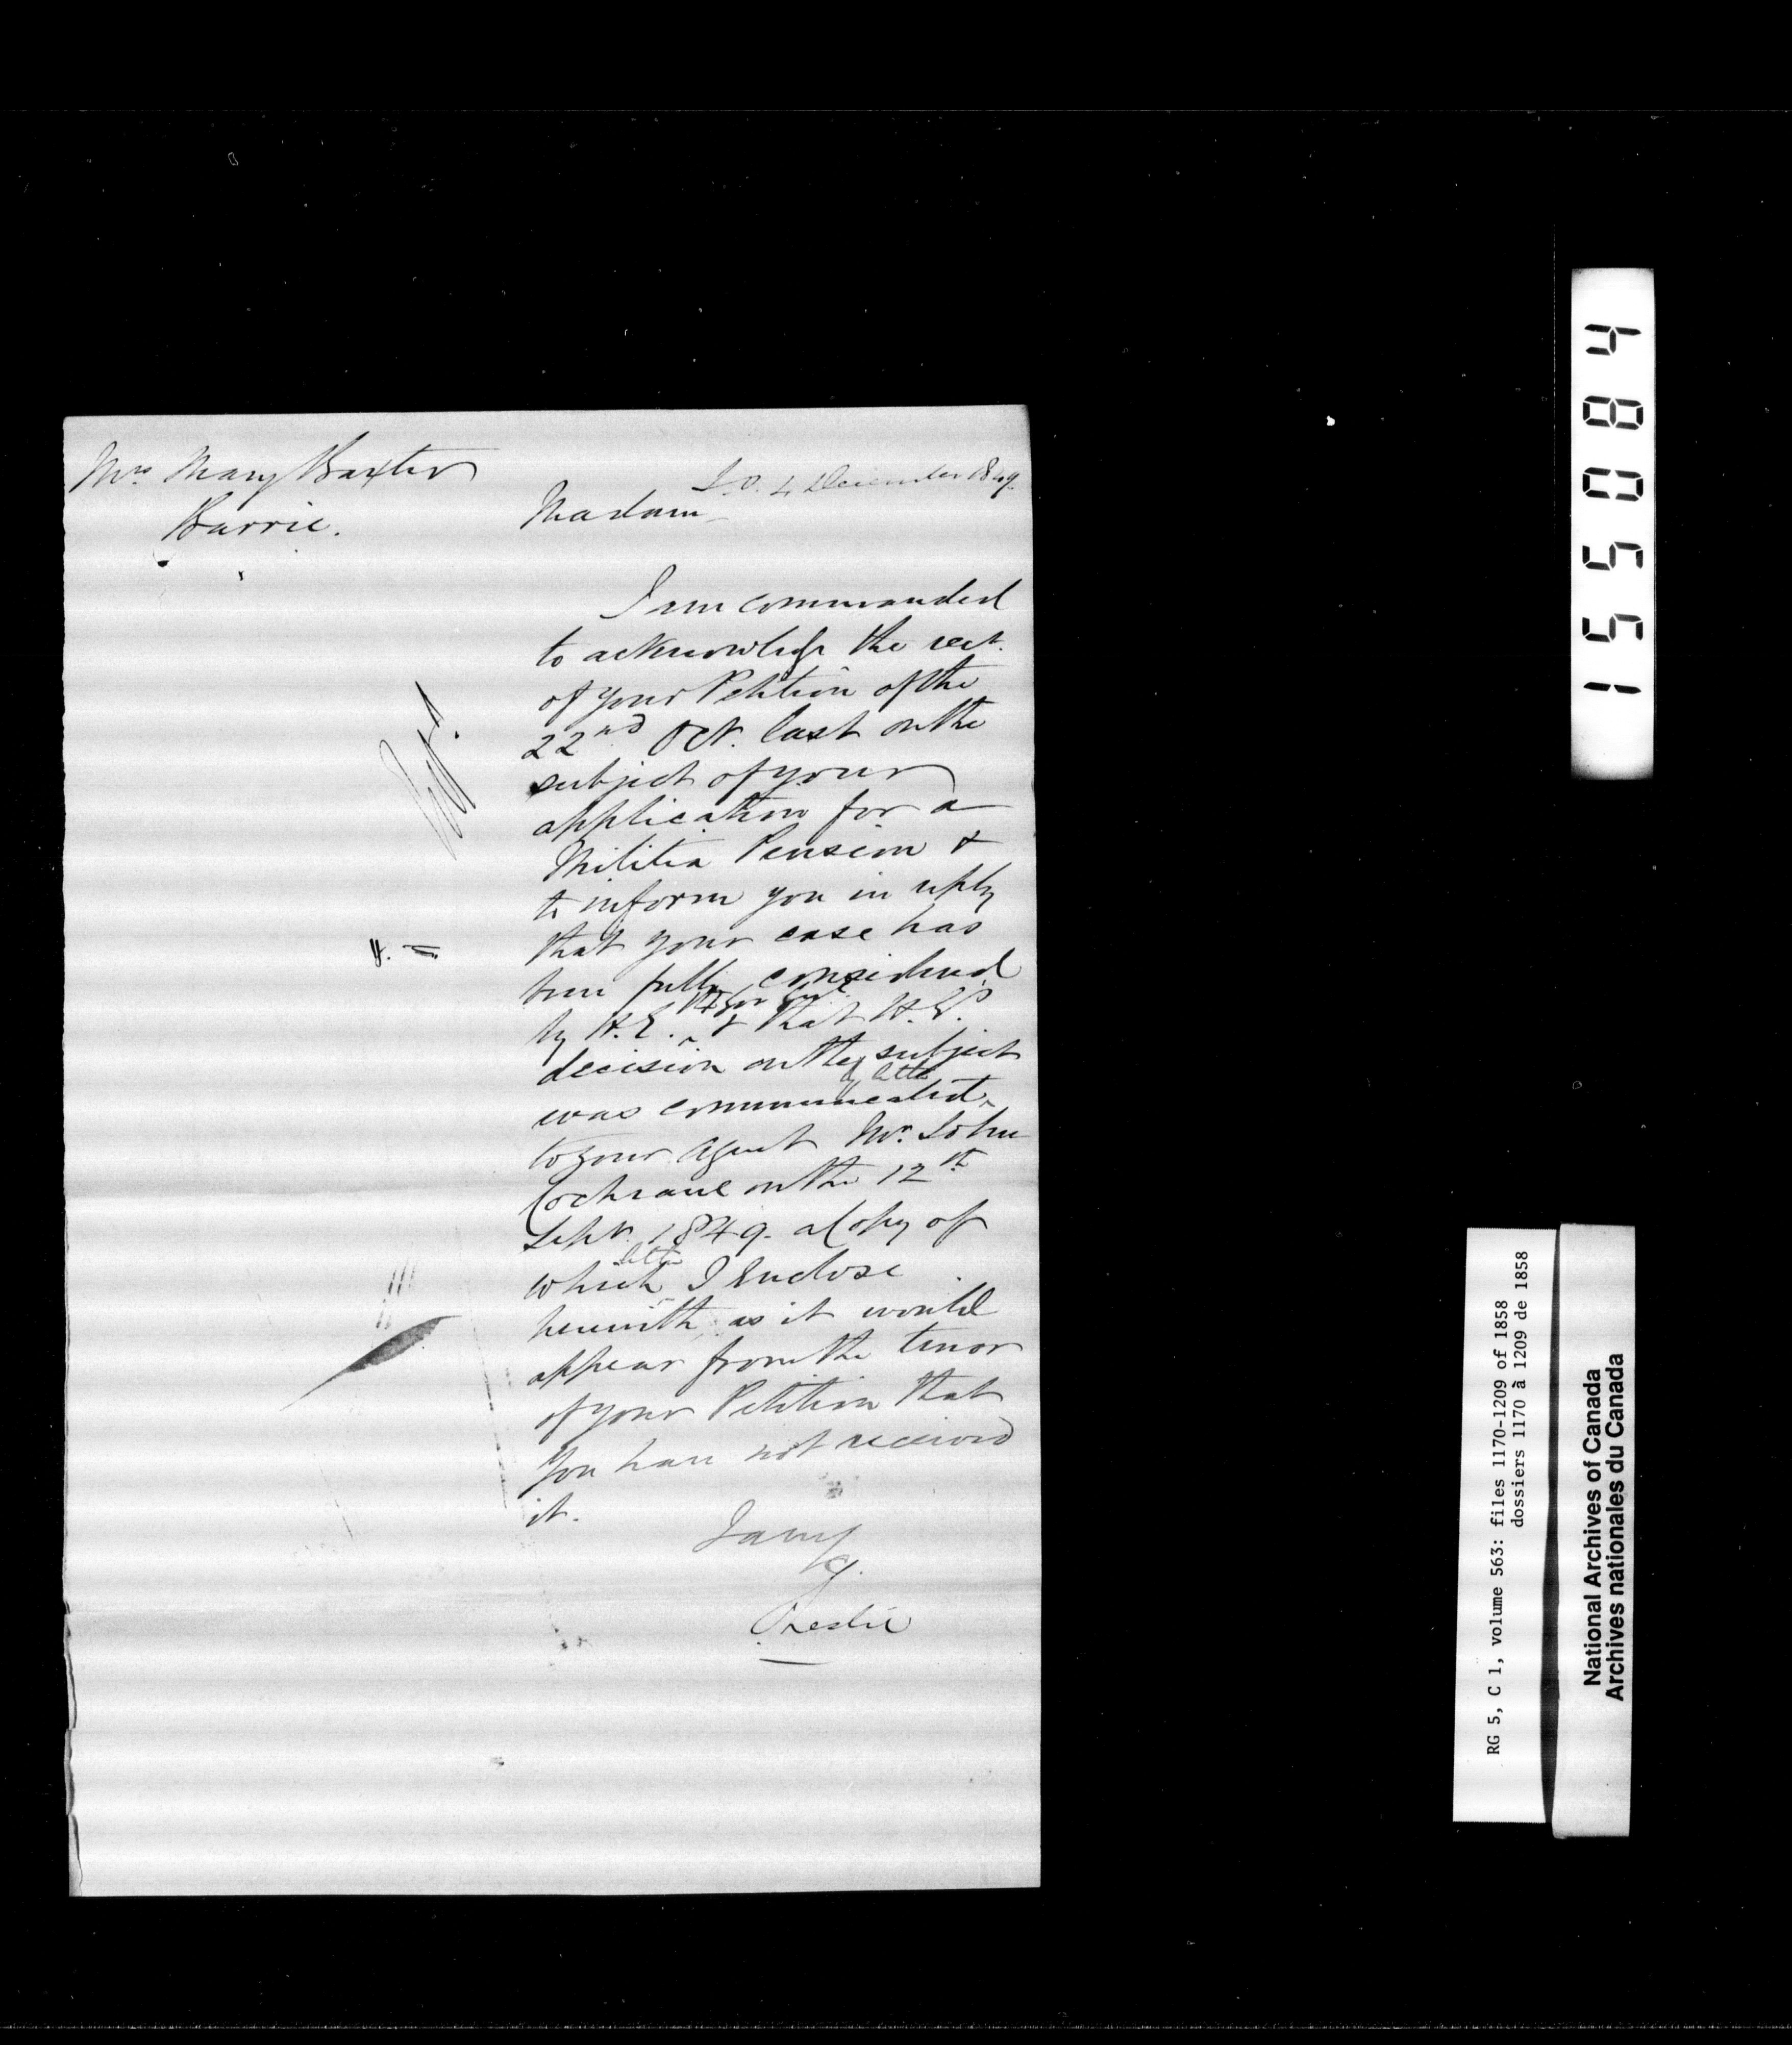 Mrs Mary Baxter
Barrie.
S.O. 4 December 1849.
Madam
I am commanded
to acknowledge the rect.
of your Petition of the
22nd Oct. last on the
subject of your
application for a
Militia Pension &
to inform you in reply
that your case has
been fully considered
by H.E. the Gov Genl & that H.E.'s
decision on the subject
was communicated by letter
to your agent Mr. John
Cochrane on the 12th
Sept. 1849. a Copy of
which letter I Enclose
herewith as it would
appear from the tenor
of your Petition that
you have not received
it.
I am
J. Leslie
155084
RG 5, C 1, volume 563: files 1170-1209 of 1858
dossiers 1170 à 1209 de 1858
National Archives of Canada
Archives nationales du Canada